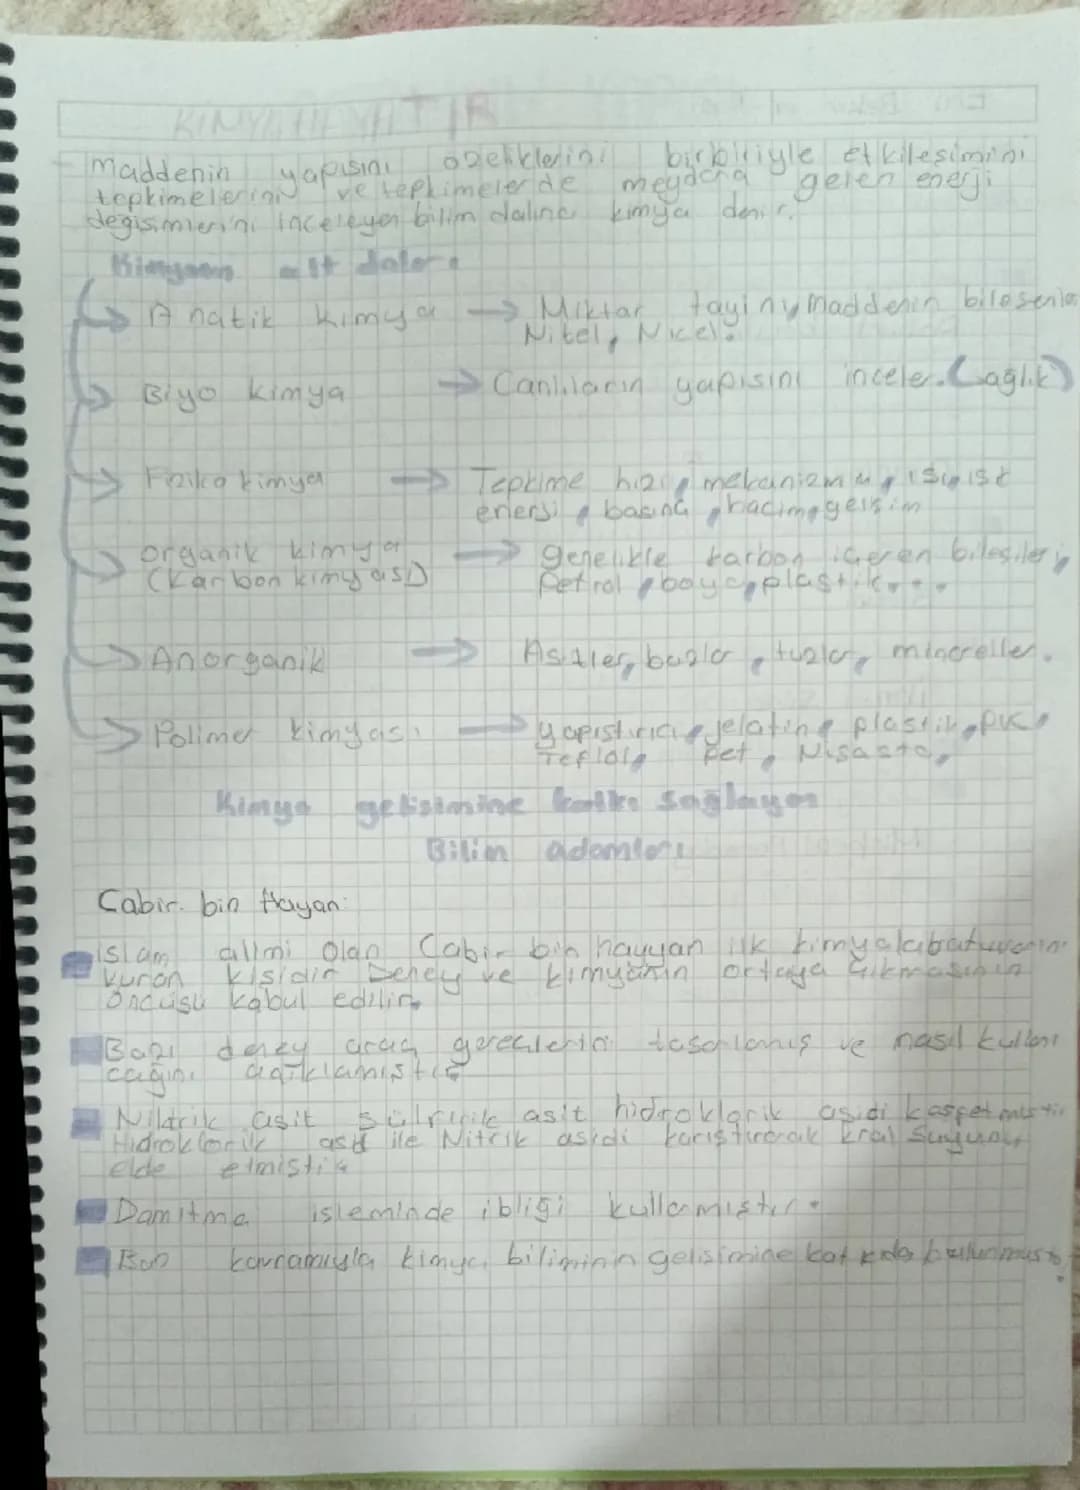 KİMYA HAYATTIR
Maddenin yapısını özeliklerini birbiriyle etkilesimini
tepkimelerini ve tepkimelerde meydana gelen enerji
değisimlerini inceleyen bilim dalına kimya denir.
Kimyanın alt dalları
Analitik kimya → Miktar tayini, Maddenin bilesenleri
Nitel, Nicel.
Biyo kimya → Canlıların yapısını inceler. (Sağlık)
Fiziko kimya → Tepkime hızı, mekanizma, ısı, ist
enerji, basınç, hacim, gerişim
organik kimya → genelikle karbon içeren bileşileri,
(Karbon kimyası) Petrol, boya, plastik...
Anorganik → Asitler, bazlar, tuzlar, mineraller.
Polimer kimyası → yapıstırıcı, jelatin, plastik, PVC,
Teflon, Pet, Nisasta,
Kimya gelisimine katkı sağlayan
Bilim adamları
Cabir bin Hayan:
İslam alimi olan Cabir bin hayyan ilk kimya labatuvarını
kuran kisidir Deney ve kimyanın ortaya çıkmasının
öncüsü kabul edilir.
Bazı deney araç gereçlerini tasarlamış ve nasıl kullanı
cağını açıklamıstır
Nitrik asit Sülfirik asit hidroklorik asidi keşfetmistir
Hidroklorik asit ile Nitrik asidi karıştırarak kral suyunu
elde etmistir
Damıtma isleminde ibliği kullanmıstır.
Baz kavramıyla kimya biliminin gelisimine katkıda bulunmustur.